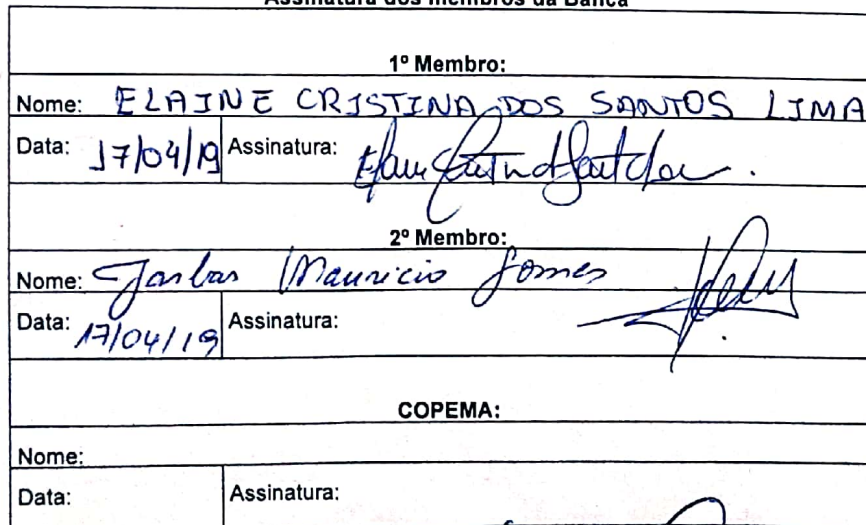 Assinatura dos membros da Banca
1º Membro:
Nome: ELAINE CRISTINA DOS SANTOS LIMA
Data: 17/04/19 Assinatura:
2º Membro:
Nome: Jarbas Mauricio Gomes
Data: 17/04/19 Assinatura:
COPEMA:
Nome:
Data: Assinatura: